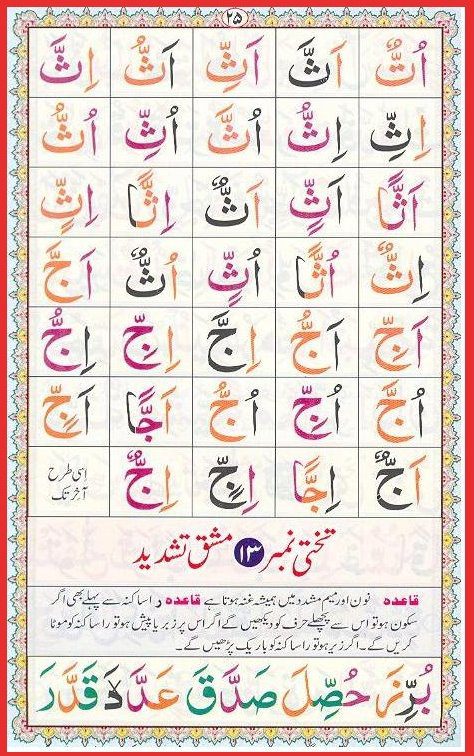 ٢٥
اُتٌّ اَثَّ اَثِّ اَثُّ اِثَّ
اِثِّ اِثُّ اُثَّ اُثِّ اُثُّ
اَثًّا اَثٍّ اَثٌّ اِثًّا اِثٍّ
اِثٌّ اُثًّا اُثٍّ اُثٌّ اَجَّ
اَجِّ اَجُّ اِجَّ اِجِّ اِجُّ
اُجَّ اُجِّ اُجُّ اَجًّا اَجٍّ
اَجٌّ اِجًّا اِجٍّ اِجٌّ اسی طرح
آخر تک
تختی نمبر ۱۳ مشق تشدید
قاعدہ نون اور میم مشدد میں ہمیشہ غنہ ہوتا ہے قاعدہ ر اسا کنہ سے پہلے بھی اگر
سکون ہو تو اس سے پچھلے حرف کو دیکھیں گے اگر اس پر زبر یا پیش ہو تو را ساکنہ کو موٹا
کریں گے۔ اگر زیر ہو تو را ساکنہ کو باریک پڑھیں گے۔
بُرِّزَ حُصِّلَ صَدَّقَ قَدَّرَ